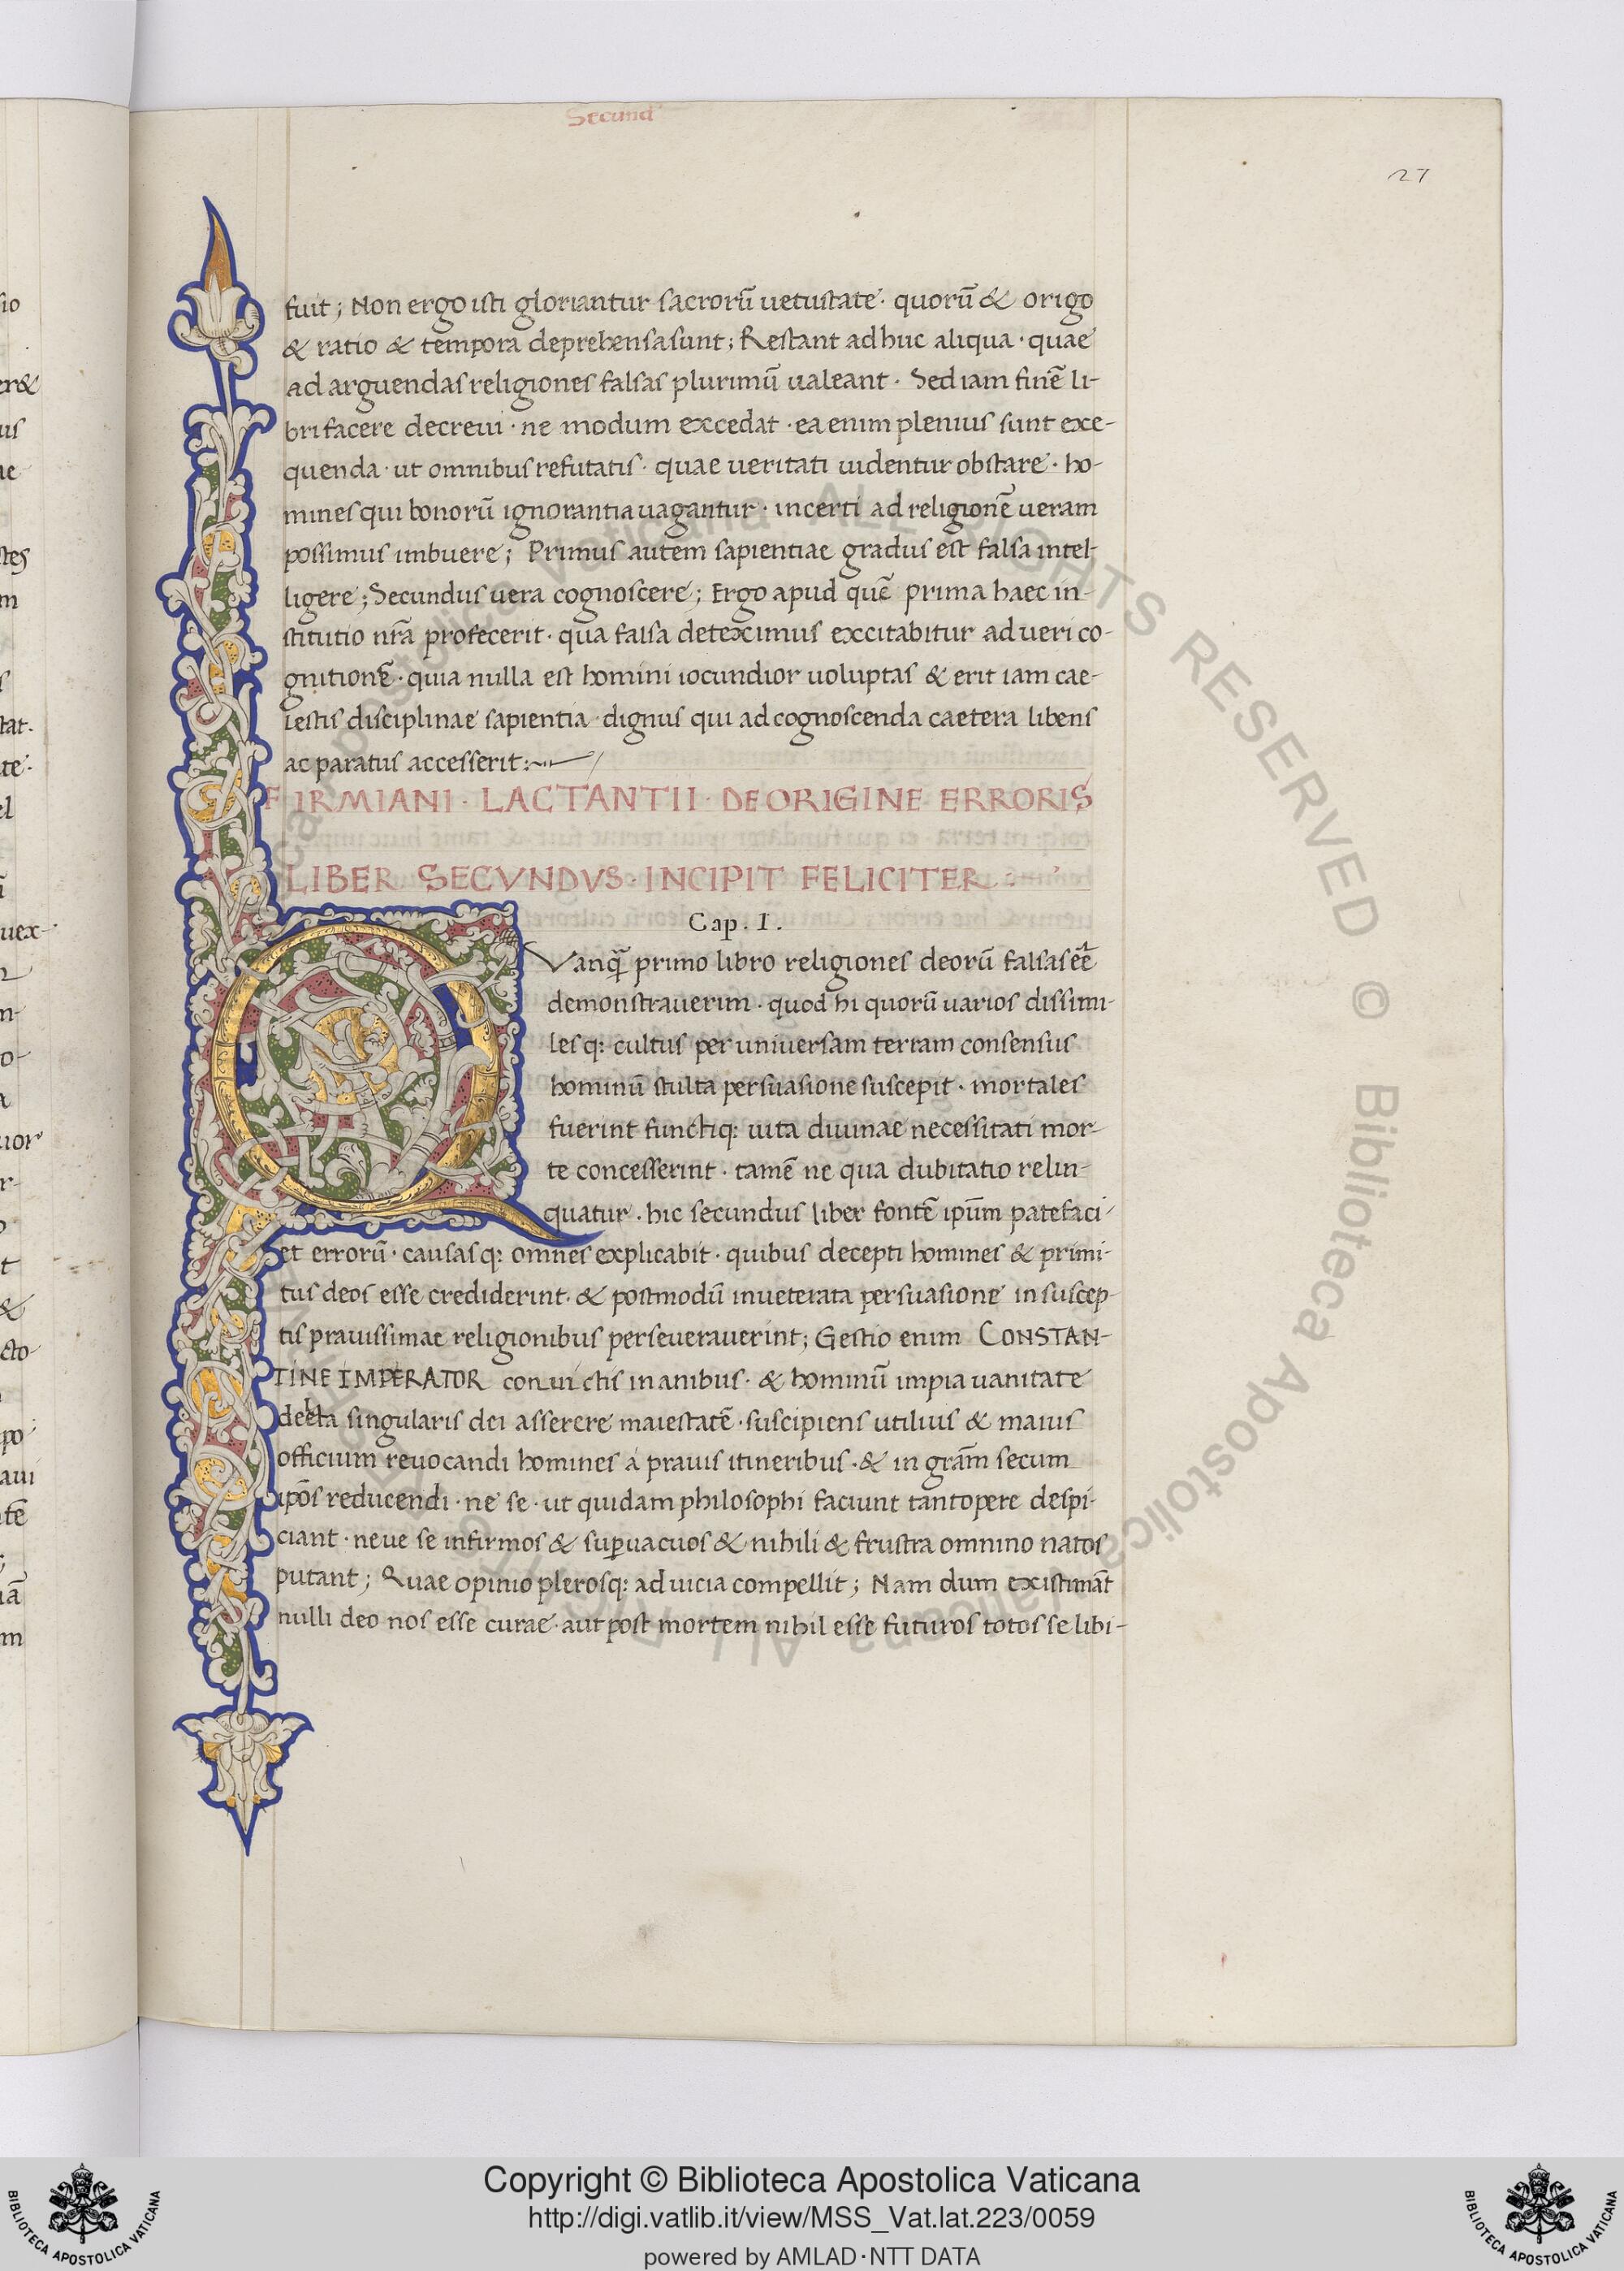 Secund
27
fuit; Non ergo isti gloriantur sacrorū uetustate · quorū & origo
& ratio & tempora deprehensa sunt; Restant adhuc aliqua · quae
ad arguendas religiones falsas plurimū ualeant · Sed iam finē li-
bri facere decreui · ne modum excedat · ea enim plenius sunt exe-
quenda · ut omnibus refutatis · quae ueritati uidentur obstare · ho-
mines qui bonorū ignorantia uagantur · incerti ad religionē ueram
possimus imbuere; Primus autem sapientiae gradus est falsa intel-
ligere; Secundus uera cognoscere; Ergo apud quē prima haec in-
stitutio nr̄a profecerit · qua falsa deteximus excitabitur ad ueri co-
gnitionē · quia nulla est homini iocundior uoluptas & erit iam cae-
lestis disciplinae sapientia · dignus qui ad cognoscenda caetera libens
ac paratus accesserit:~
FIRMIANI · LACTANTII · DE ORIGINE ERRORIS
LIBER SECVNDVS · INCIPIT FELICITER :
Cap. I.
QVanq̄ primo libro religiones deorū falsas eē
demonstrauerim · quod hi quorū uarios dissimi-
lesq: cultus per uniuersam terram consensus
hominū stulta persuasione suscepit · mortales
fuerint functiq: uita diuinae necessitati mor-
te concesserint · tamē ne qua dubitatio relin-
quatur · hic secundus liber fontē ip̄um patefaci-
et errorū · causasq: omnes explicabit · quibus decepti homines & primi-
tus deos esse crediderint · & postmodū inueterata persuasione in suscep-
tis prauissimae religionibus perseuerauerint; Gestio enim CONSTAN-
TINE IMPERATOR conuictis inanibus · & hominū impia uanitate
singularis dei asserere maiestatē · suscipiens utilius & maius
officium reuocandi homines á prauis itineribus · & in gr̄am secum
ip̄os reducendi · ne se · ut quidam philosophi faciunt tantopere despi-
ciant · neue se infirmos & sup̄uacuos & nihili & frustra omnino natos
putant; Quae opinio plerosq: ad uicia compellit; Nam dum existimāt
nulli deo nos esse curae · aut post mortem nihil esse futuros totos se libi-
Biblioteca Apostolica Vaticana ALL RIGHTS RESERVED ©
Copyright © Biblioteca Apostolica Vaticana
http://digi.vatlib.it/view/MSS_Vat.lat.223/0059
powered by AMLAD·NTT DATA
BIBLIOTECA APOSTOLICA VATICANA
BIBLIOTECA APOSTOLICA VATICANA